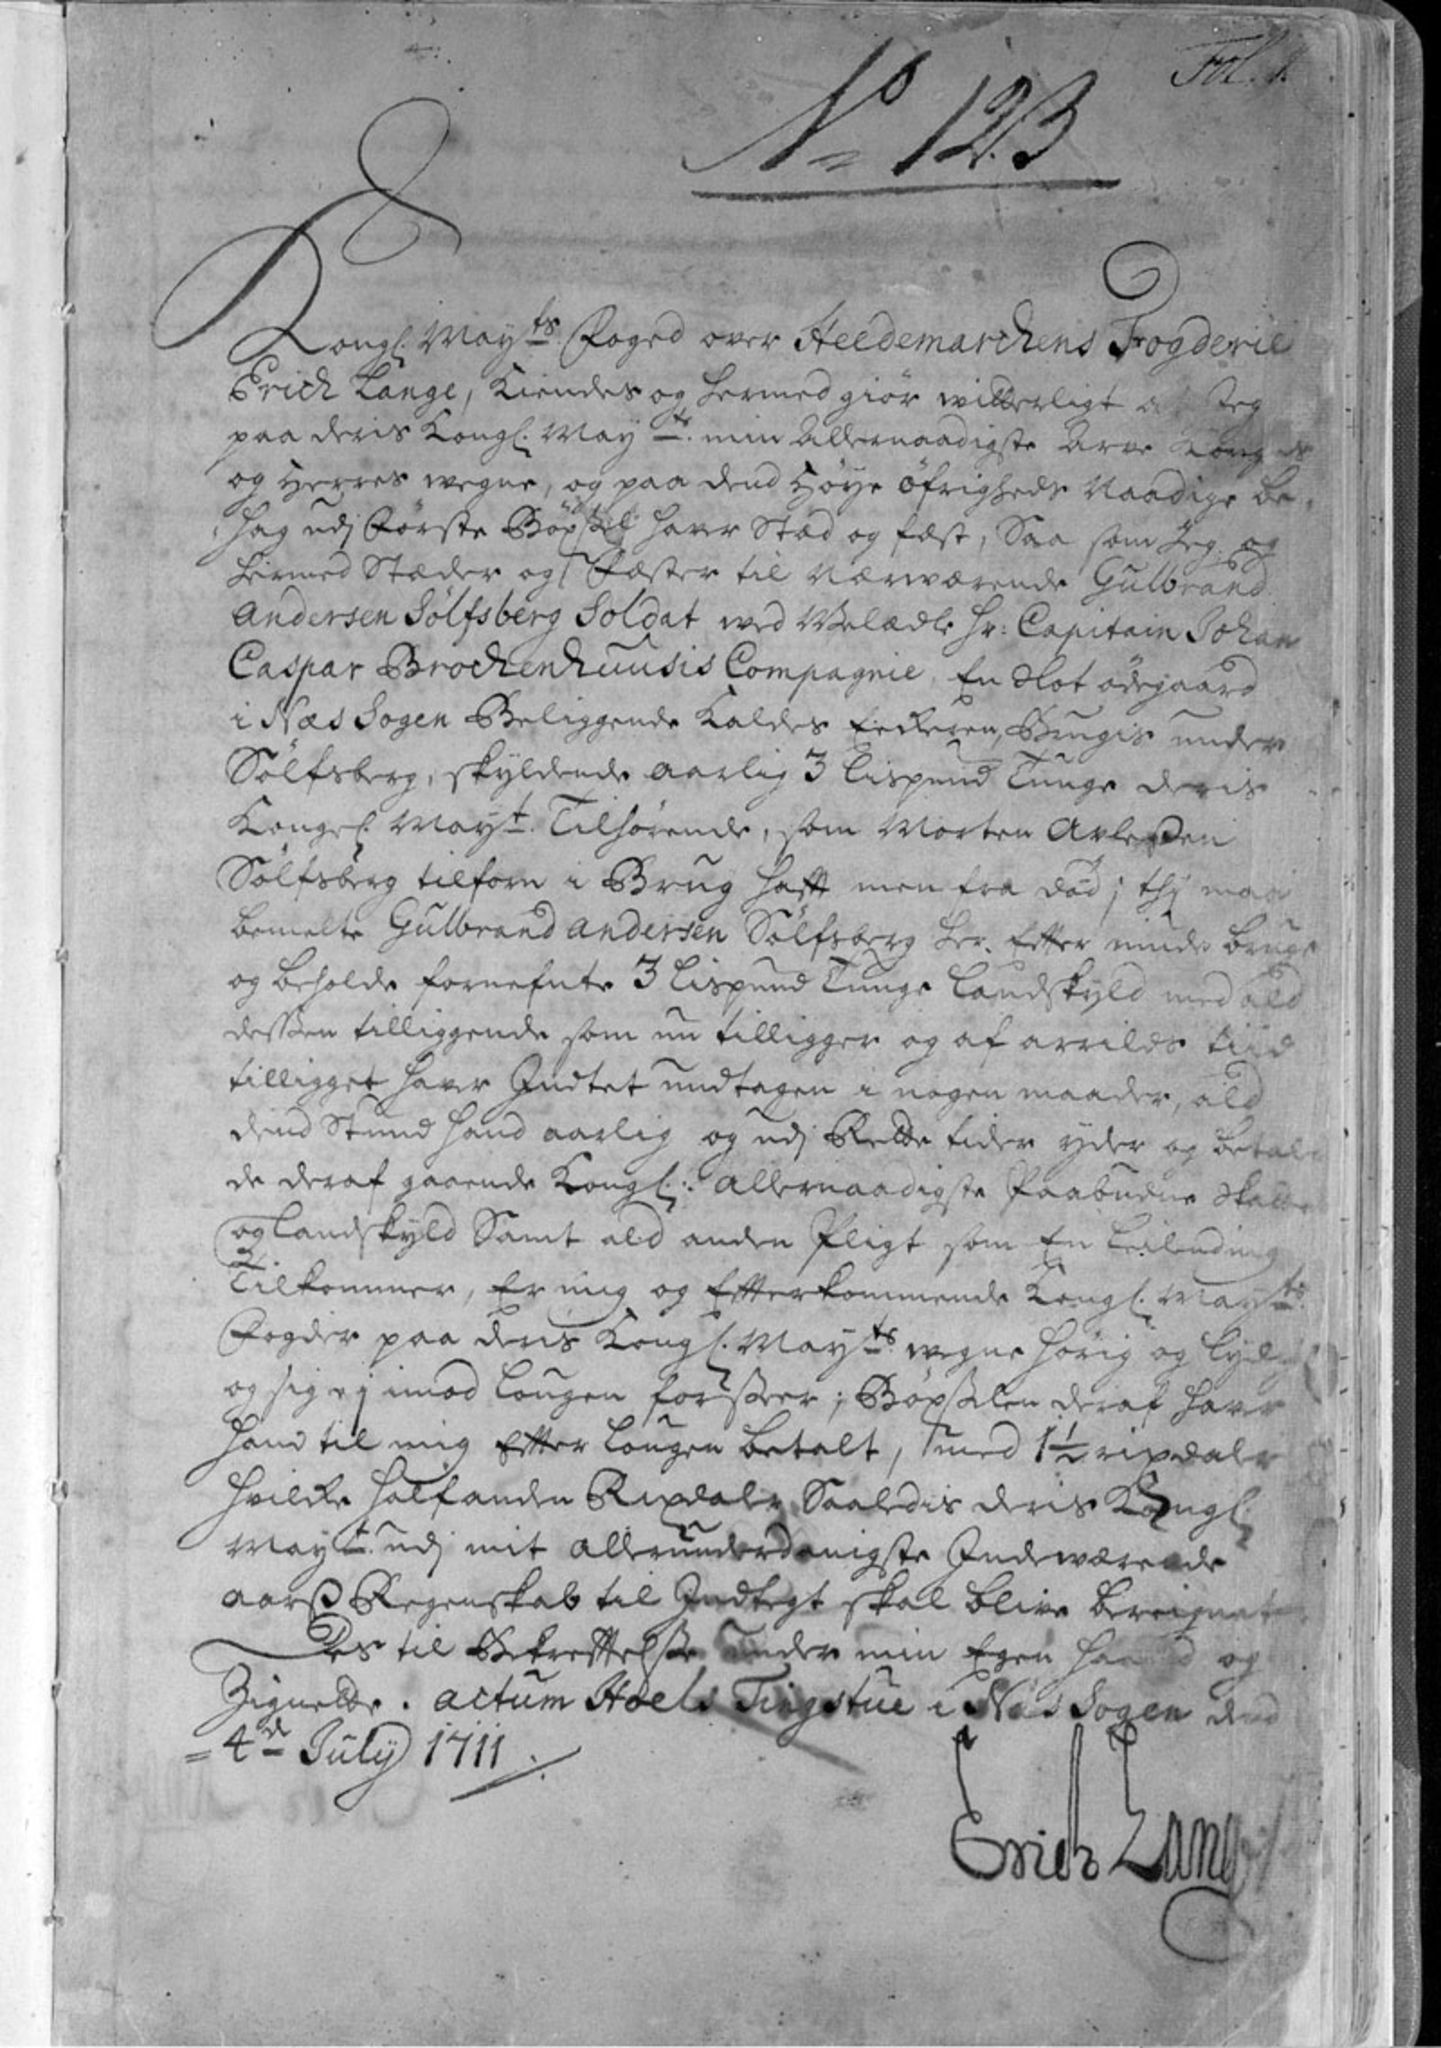 Fol. 1.
No 123
Kongl. Mayts Foged over Heedemarchens Fogderie
Erich Lange, Kiendes og hermed giör witterligt at Jeg
paa deris Kongl. Mayts min Allernaadigste Arve Konges
og Herres wegne, og paa dend Höye Öfrigheds Naadige be-
hag udj Förste Böxsel hawer Stæd og fæst, Saa som Jeg og
hermed Stæder og Fæster til Nærwærende Gulbrand
Andersen Sölfsberg Soldat wed Welædle Hr: Capitain Johan
Caspar Brochenhuusis Compagnie, En Slot ödegaard
i Næs Sogen Beliggende Kaldes Eecheren, Brugis under
Sölfsberg, skyldende aarlig 3 Lispund Tunge deris
Kongel. Mayt. Tilhörende, som Morten
Sölfsberg tilforn i Brug hafft men fra död; thj maa
bemelte Gulbrand Andersen Sölfsberg her Efter niude bruge
og beholde fornefnte 3 Lispund Tunge Landskyld med ald
dessen tilliggende som nu tilligger og af arrilds tiid
tilligget hawer Indtet undtagen i nogen maader, ald
dend Stund hand aarlig og udj Rette tider yder og betaler
de deraf gaaende Kongl: Allernaadigste Paabudne Skatter
og Landskyld Samt ald anden Pligt som En Leilending
Tilkommer, Er mig og Efterkommende Kongl. Mayts
Fogder paa deris Kongl. Mayts wegne hörig og lydig
og sig ej imod Lougen forsseer; Böxselen deraf hawer
hand til mig Efter Lougen betalt, med 1½ rixdaler
hvilke halfanden Rixdaler Saaledis deris Kongl.
Mayt. udj mit allerunderdanigste Indewærende
aarß Regenskab til Indtegt skal blive bereignet
Des til Bekrefftelsse under min Egen haand og
Zignette. Actum Hoels Tingstue i Næs Sogen dend
4de July 1711.
Erich Lange